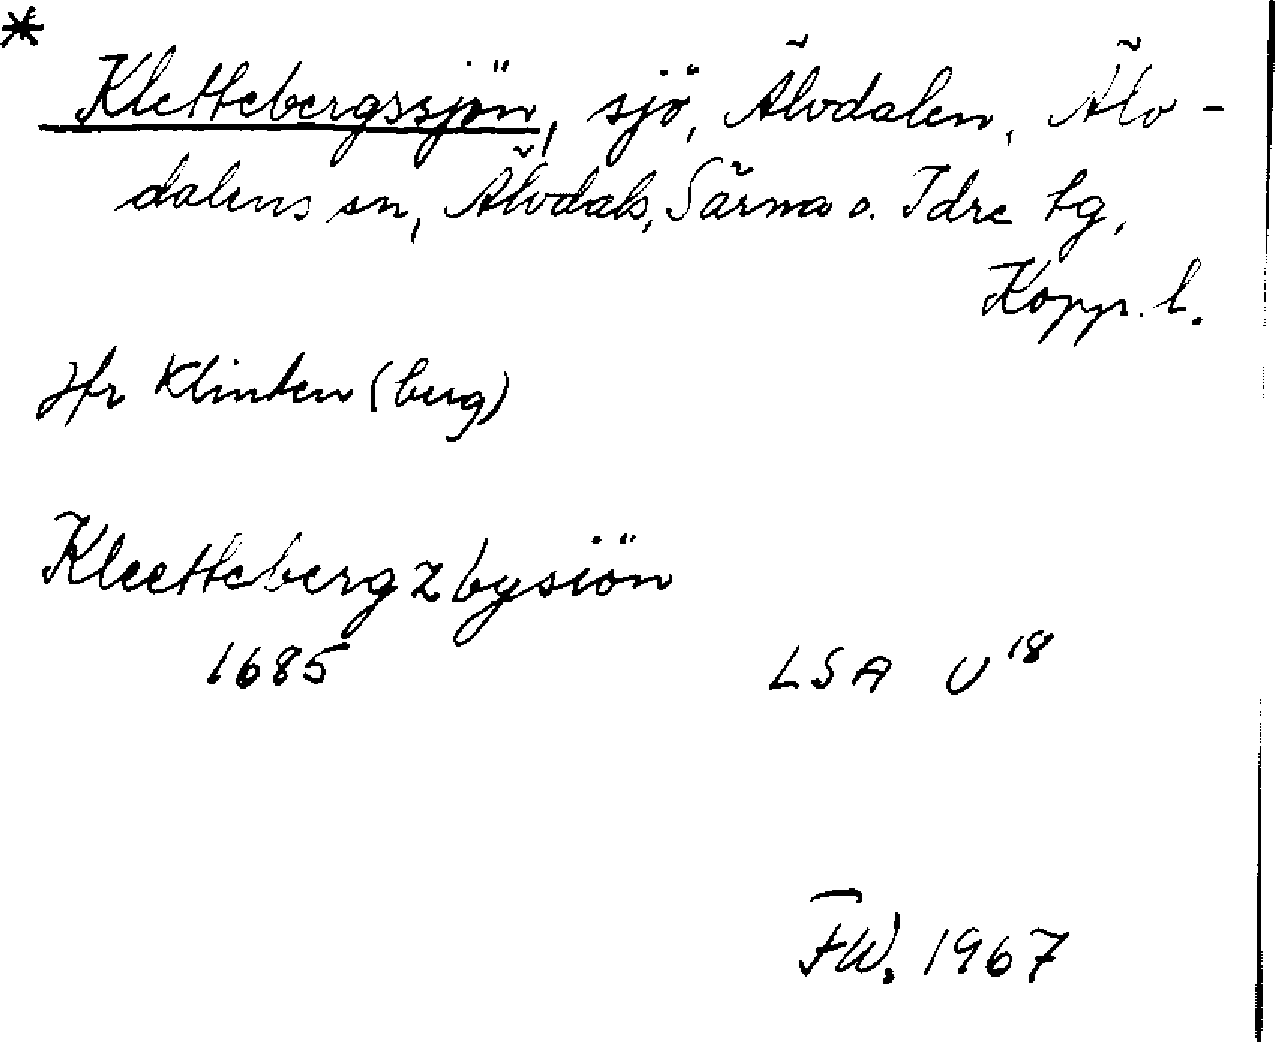 *
Klettebergssjön, sjö, Älvdalen, Älv-
dalens sn, Älvdals, Särna o. Idre tg,
Kopp. l.
Jfr Klinten (berg)
Kleettebergzbysiön
1685 LSA U18
FW. 1967